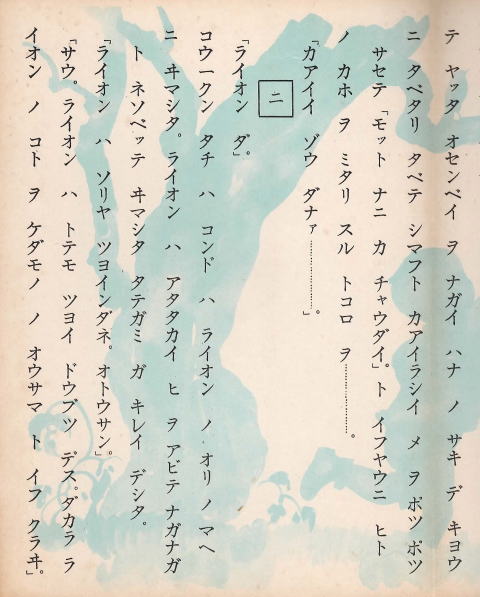 テ ヤッタ オセンベイ ヲ ナガイ ハナ ノ サキ デ キヨウ
ニ タベタリ タベテ シマフト カアイラシイ メ ヲ ポツポツ
サセテ「モット ナニ カ チャウダイ。」ト イフヤウニ ヒト
ノ カホ ヲ ミタリ スル トコロ ヲ…………。
「カアイイ ゾウ ダナァ…………」。
二
「ライオン ダ」。
コウークン タチ ハ コンド ハ ライオン ノ オリ ノ マヘ
ニ ヰマシタ。ライオン ハ アタタカイ ヒ ヲ アビテ ナガナガ
ト ネソベッテ ヰマシタ タテガミ ガ キレイ デシタ。
「ライオン ハ ソリヤ ツヨインダネ。オトウサン」。
「サウ。ライオン ハ トテモ ツヨイ ドウブツ デス。ダカラ ラ
イオン ノ コト ヲ ケダモノ ノ オウサマ ト イフ クラヰ。」